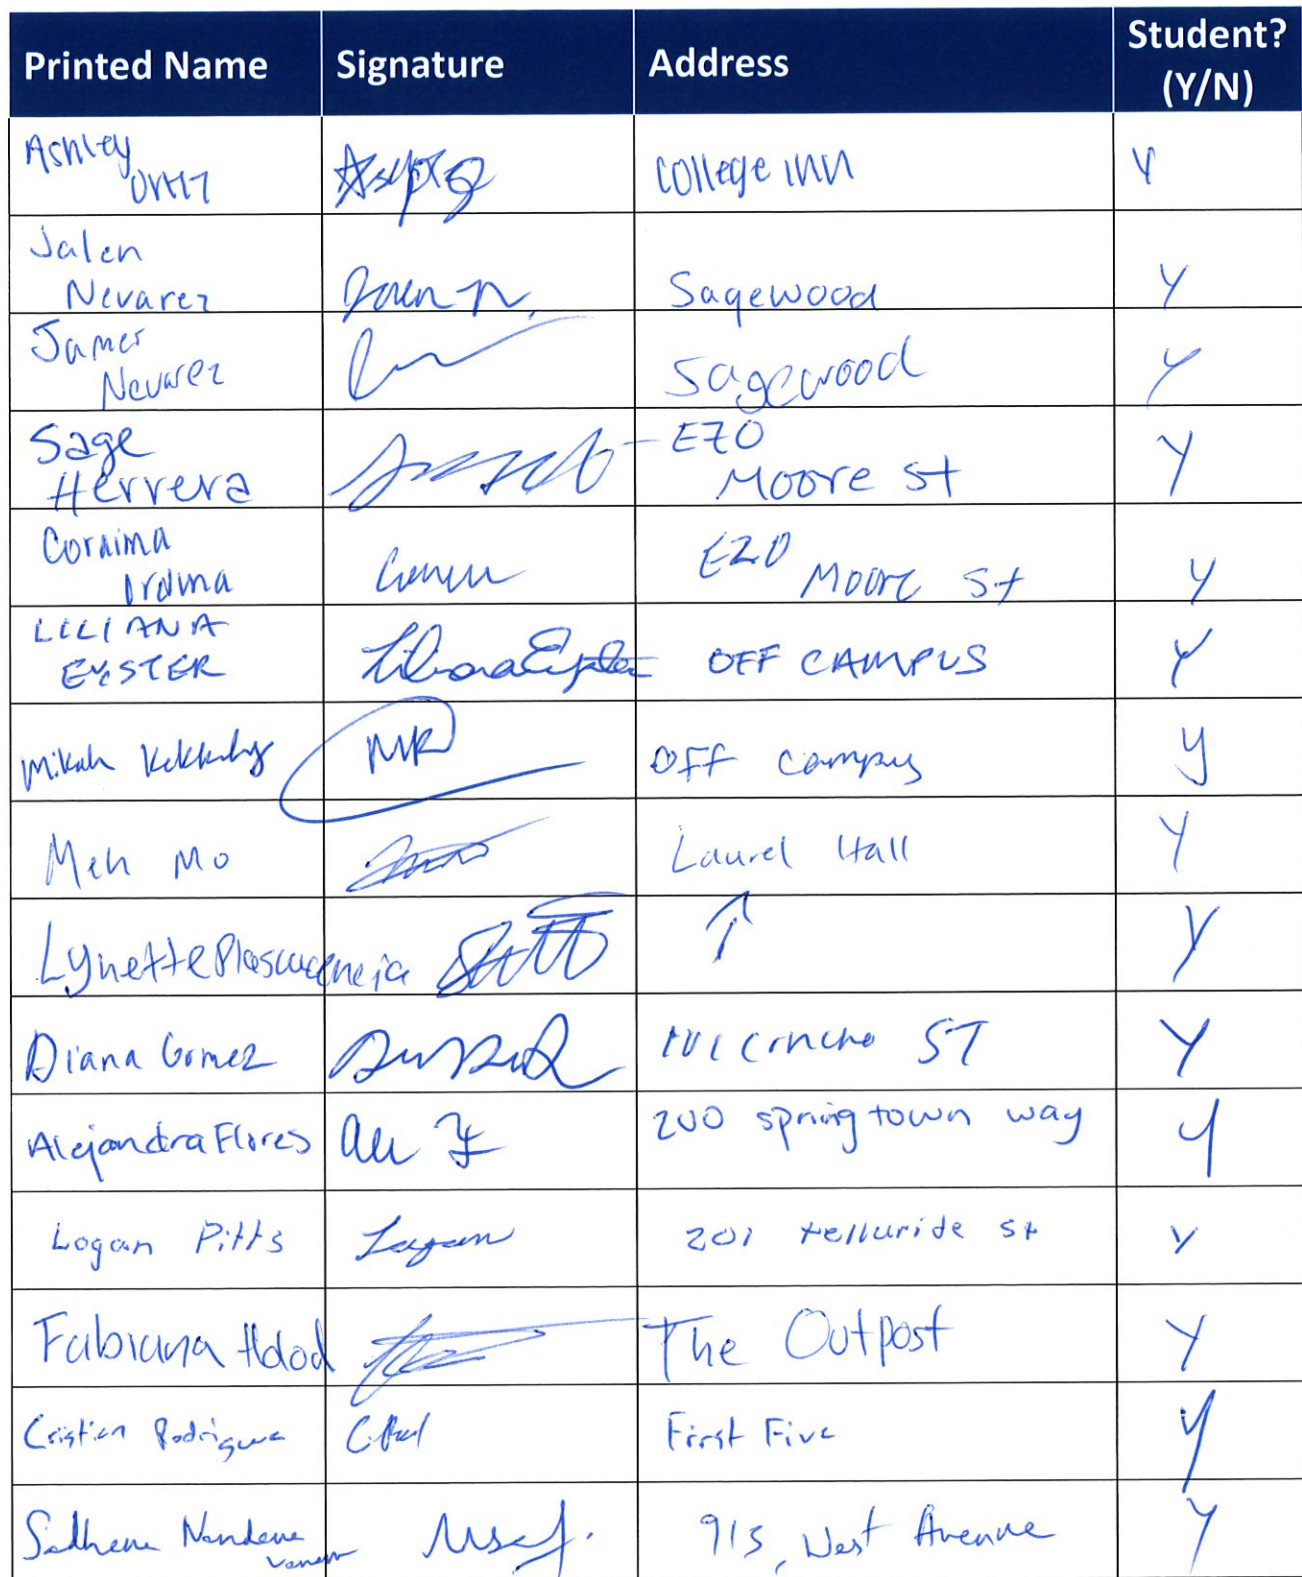 Printed Name Signature Address Student? (Y/N)
Ashley Ortiz College Inn Y
Jalen Nevarez Sagewood Y
James Nevarez Sagewood Y
Sage Herrera E70 Moore St Y
Coraima E20 Moore St Y
LILIANA EYSTER Liliana Eyster OFF CAMPUS Y
Mikah MR Off campus y
Meh Mo Laurel Hall Y
Lynette ↑ Y
Diana Gomez ST Y
Alejandra Flores 200 springtown way y
Logan Pitts Logan 201 telluride st Y
Fabiana The Outpost Y
Cristian First Five y
913, West Avenue Y